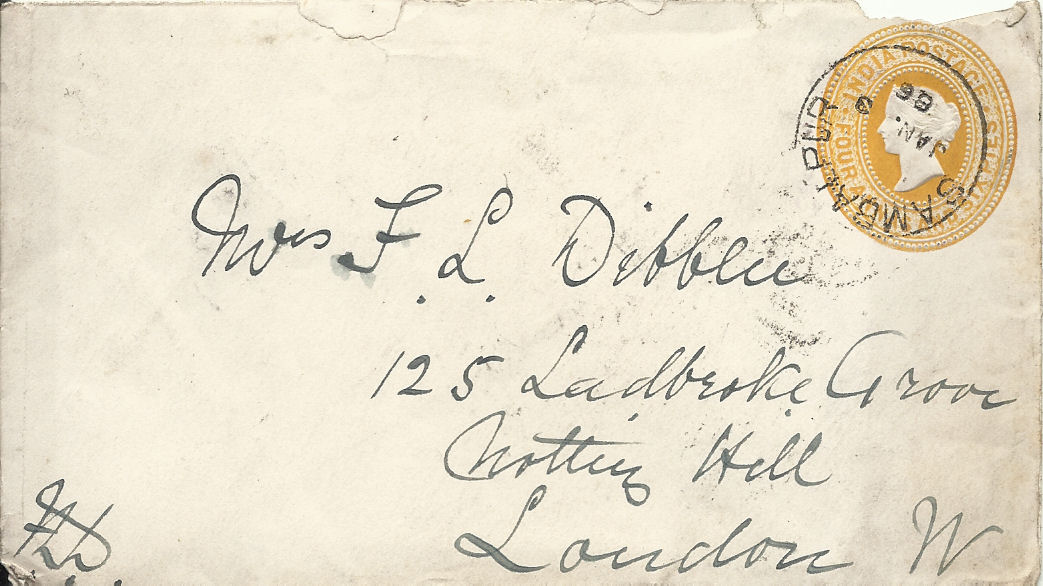 INDIA POSTAGE
FOUR
SAMBALPUR
JAN.
98
Mrs F. L. Dibblee
125 Ladbroke Grove
Notting Hill
London W